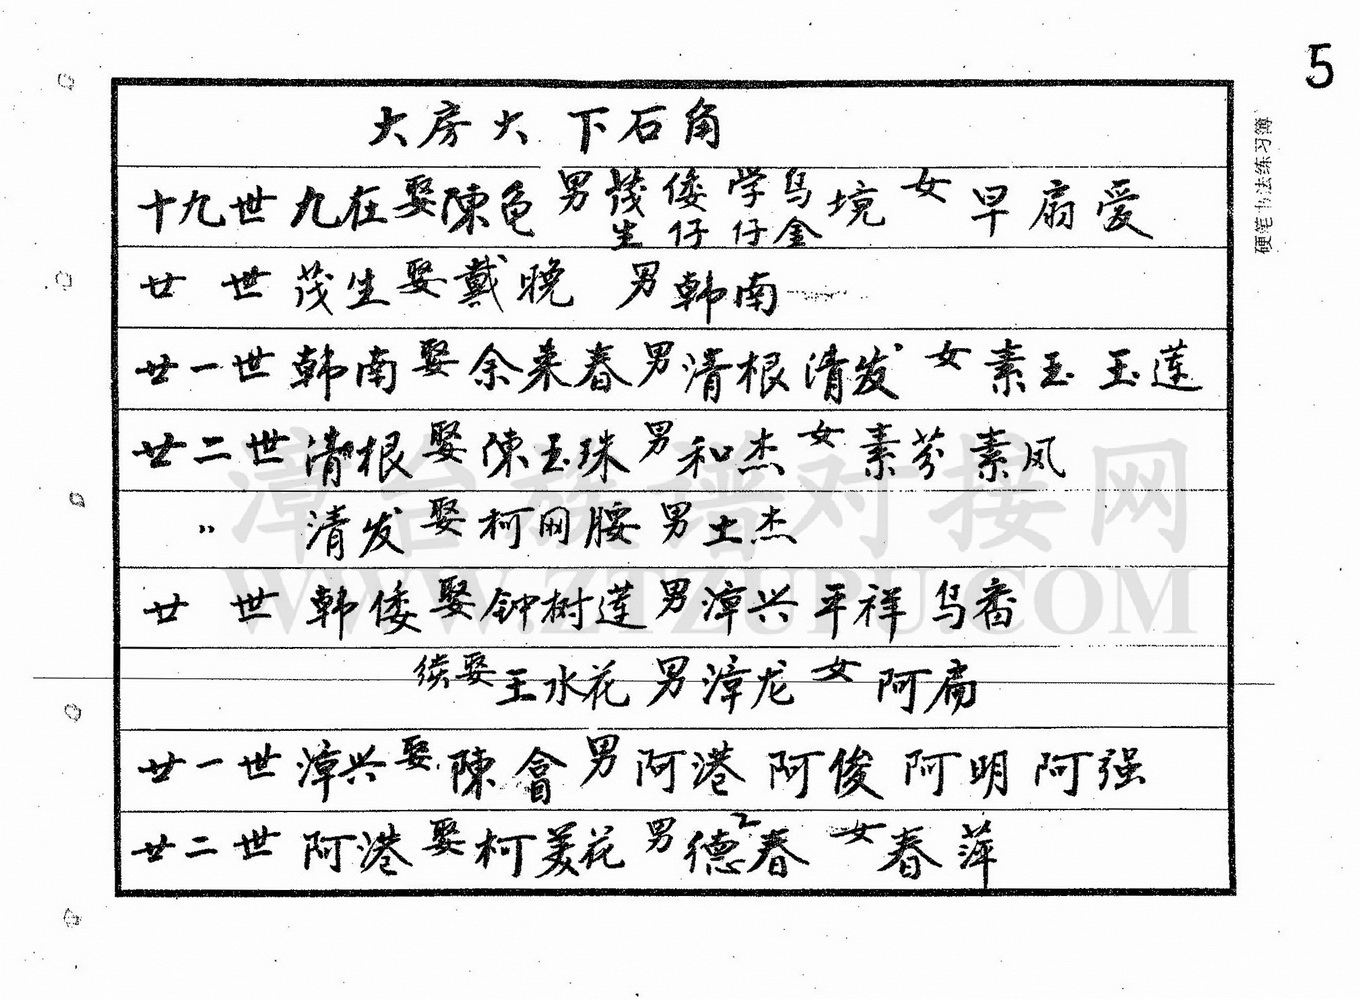 5
大房大 下石角
十九世 九在 娶 陳龟 男 茂生 倭仔 学仔 乌金 境 女 早 扁 爱
廿 世 茂生 娶 戴晚 男 韩南
廿一世 韩南 娶 余来春 男 清根 清发 女 素玉 玉莲
廿二世 清根 娶 陳玉珠 男 和杰 女 素芬 素凤
〃 清发 娶 柯网腰 男 土杰
廿 世 韩倭 娶 钟树莲 男 漳兴 平祥 乌番
续娶 王水花 男 漳龙 女 阿扁
廿一世 漳兴 娶 陳 男 阿港 阿俊 阿明 阿强
廿二世 阿港 娶 柯美花 男 德春 女 春萍
硬笔书法练习簿
漳台族谱对接网
WWW.ZTZUPU.COM